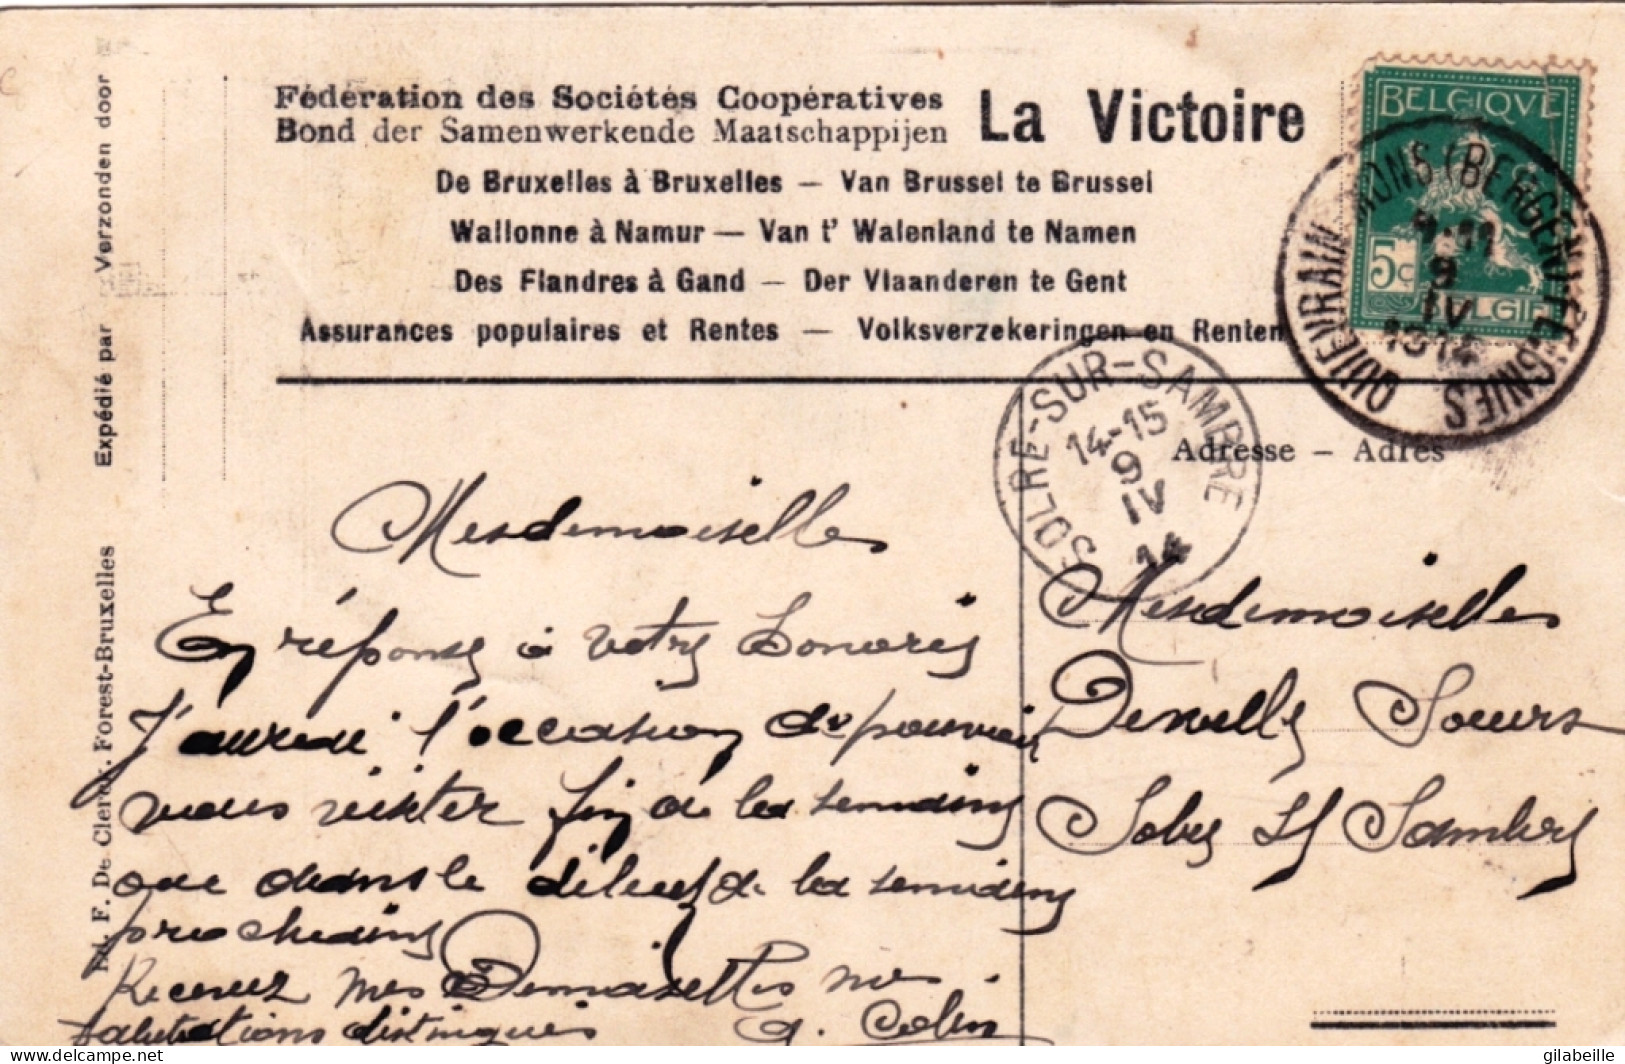 Fédération des Sociétés Coopératives
Bond der Samenwerkende Maatschappijen
La Victoire
De Bruxelles à Bruxelles — Van Brussel te Brussel
Wallonne à Namur — Van t' Walenland te Namen
Des Flandres à Gand — Der Vlaanderen te Gent
Assurances populaires et Rentes — Volksverzekeringen en Renten
Expédié par Verzonden door
F. De Clerck. Forest-Bruxelles
BELGIQVE
5c
BELGIE
MONS (BERGEN) FEIGNIES QUIEVRAIN
9
IV
1914
SOLRE-SUR-SAMBRE
14-15
9
IV
14
Adresse — Adres
Mesdemoiselles
En réponse à votre
J'aurai l'occasion de pouvoir
vous visiter fin de la semaine
ou dans le début de la semaine
prochaine
Recevez mes Demoiselles mes
salutations distingués
Colin
Mesdemoiselles
Soeurs
S/ Sambre
gilabeille